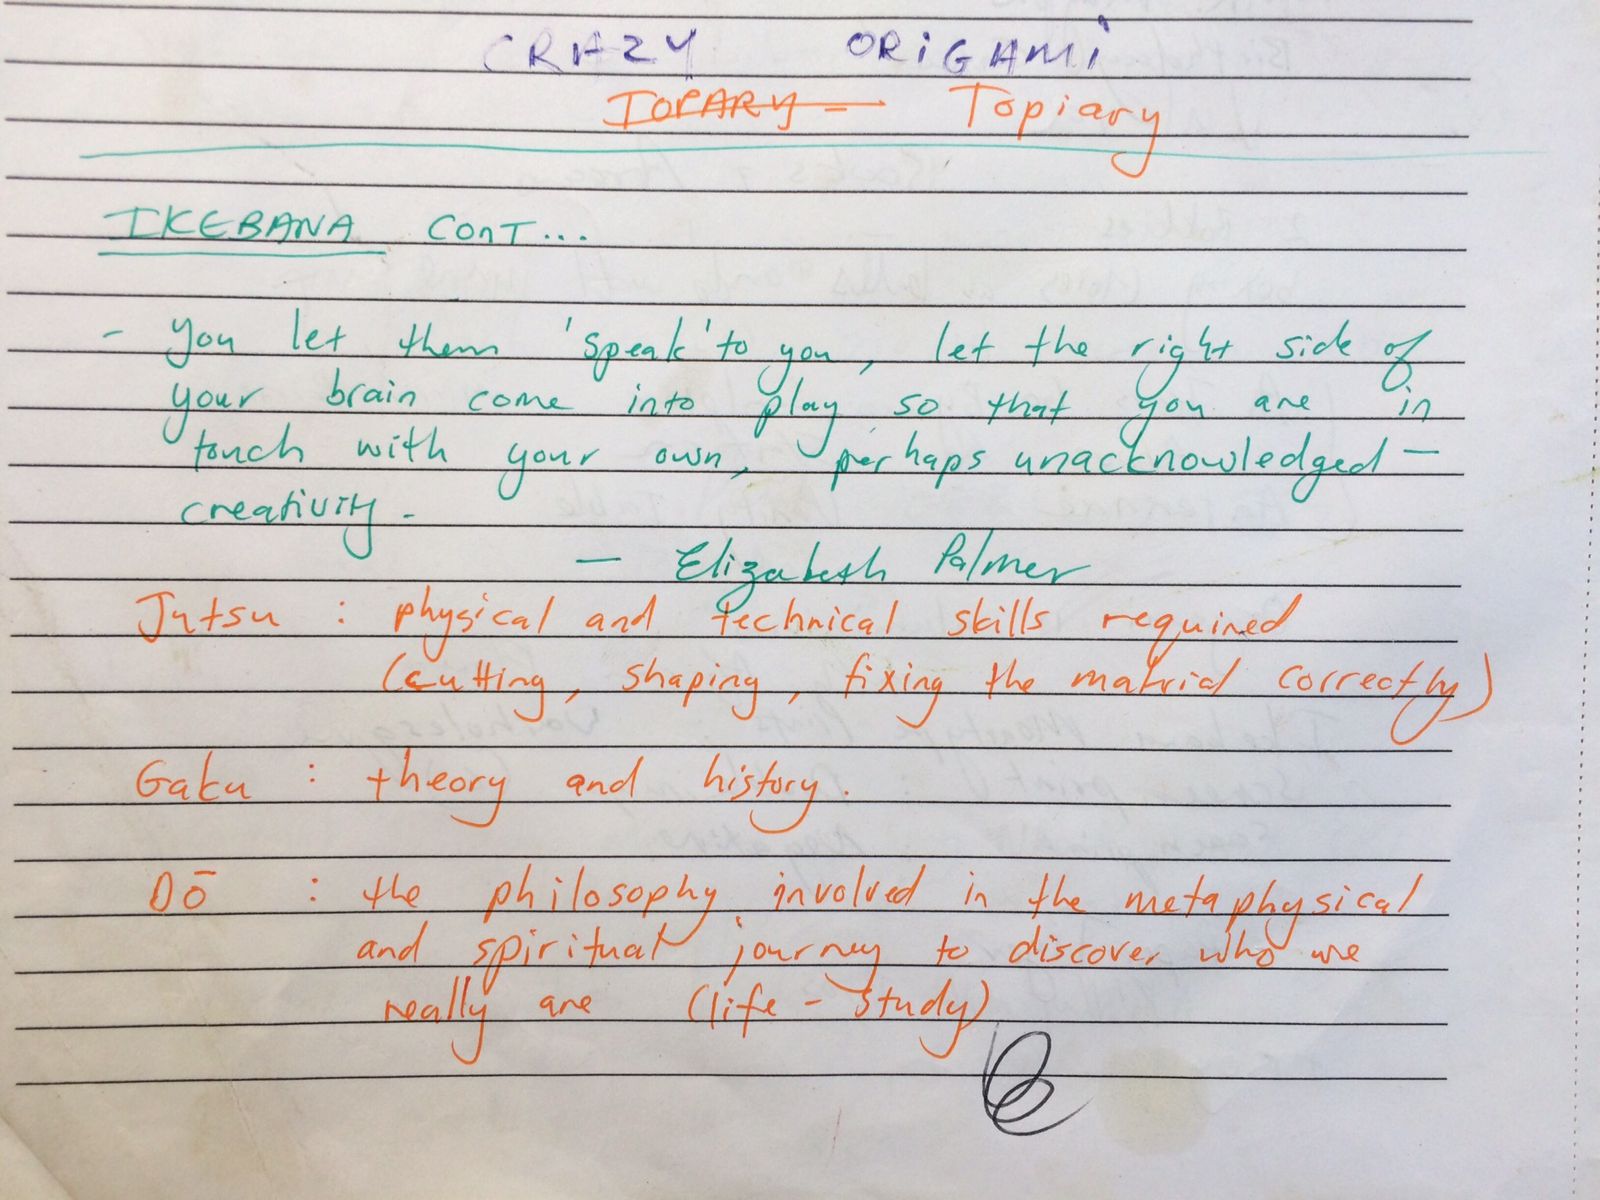 CRAZY ORiGAMi
TOPARY — Topiary
IKEBANA CONT...
- you let them 'speak' to you, let the right side of
your brain come into play so that you are in
touch with your own, perhaps unacknowledged —
creativity.
— Elizabeth Palmer
Jutsu : physical and technical skills required
(cutting, shaping, fixing the matrial correctly)
Gaku : theory and history.
Dō : the philosophy involved in the metaphysical
and spiritual journey to discover who we
really are (life - study)